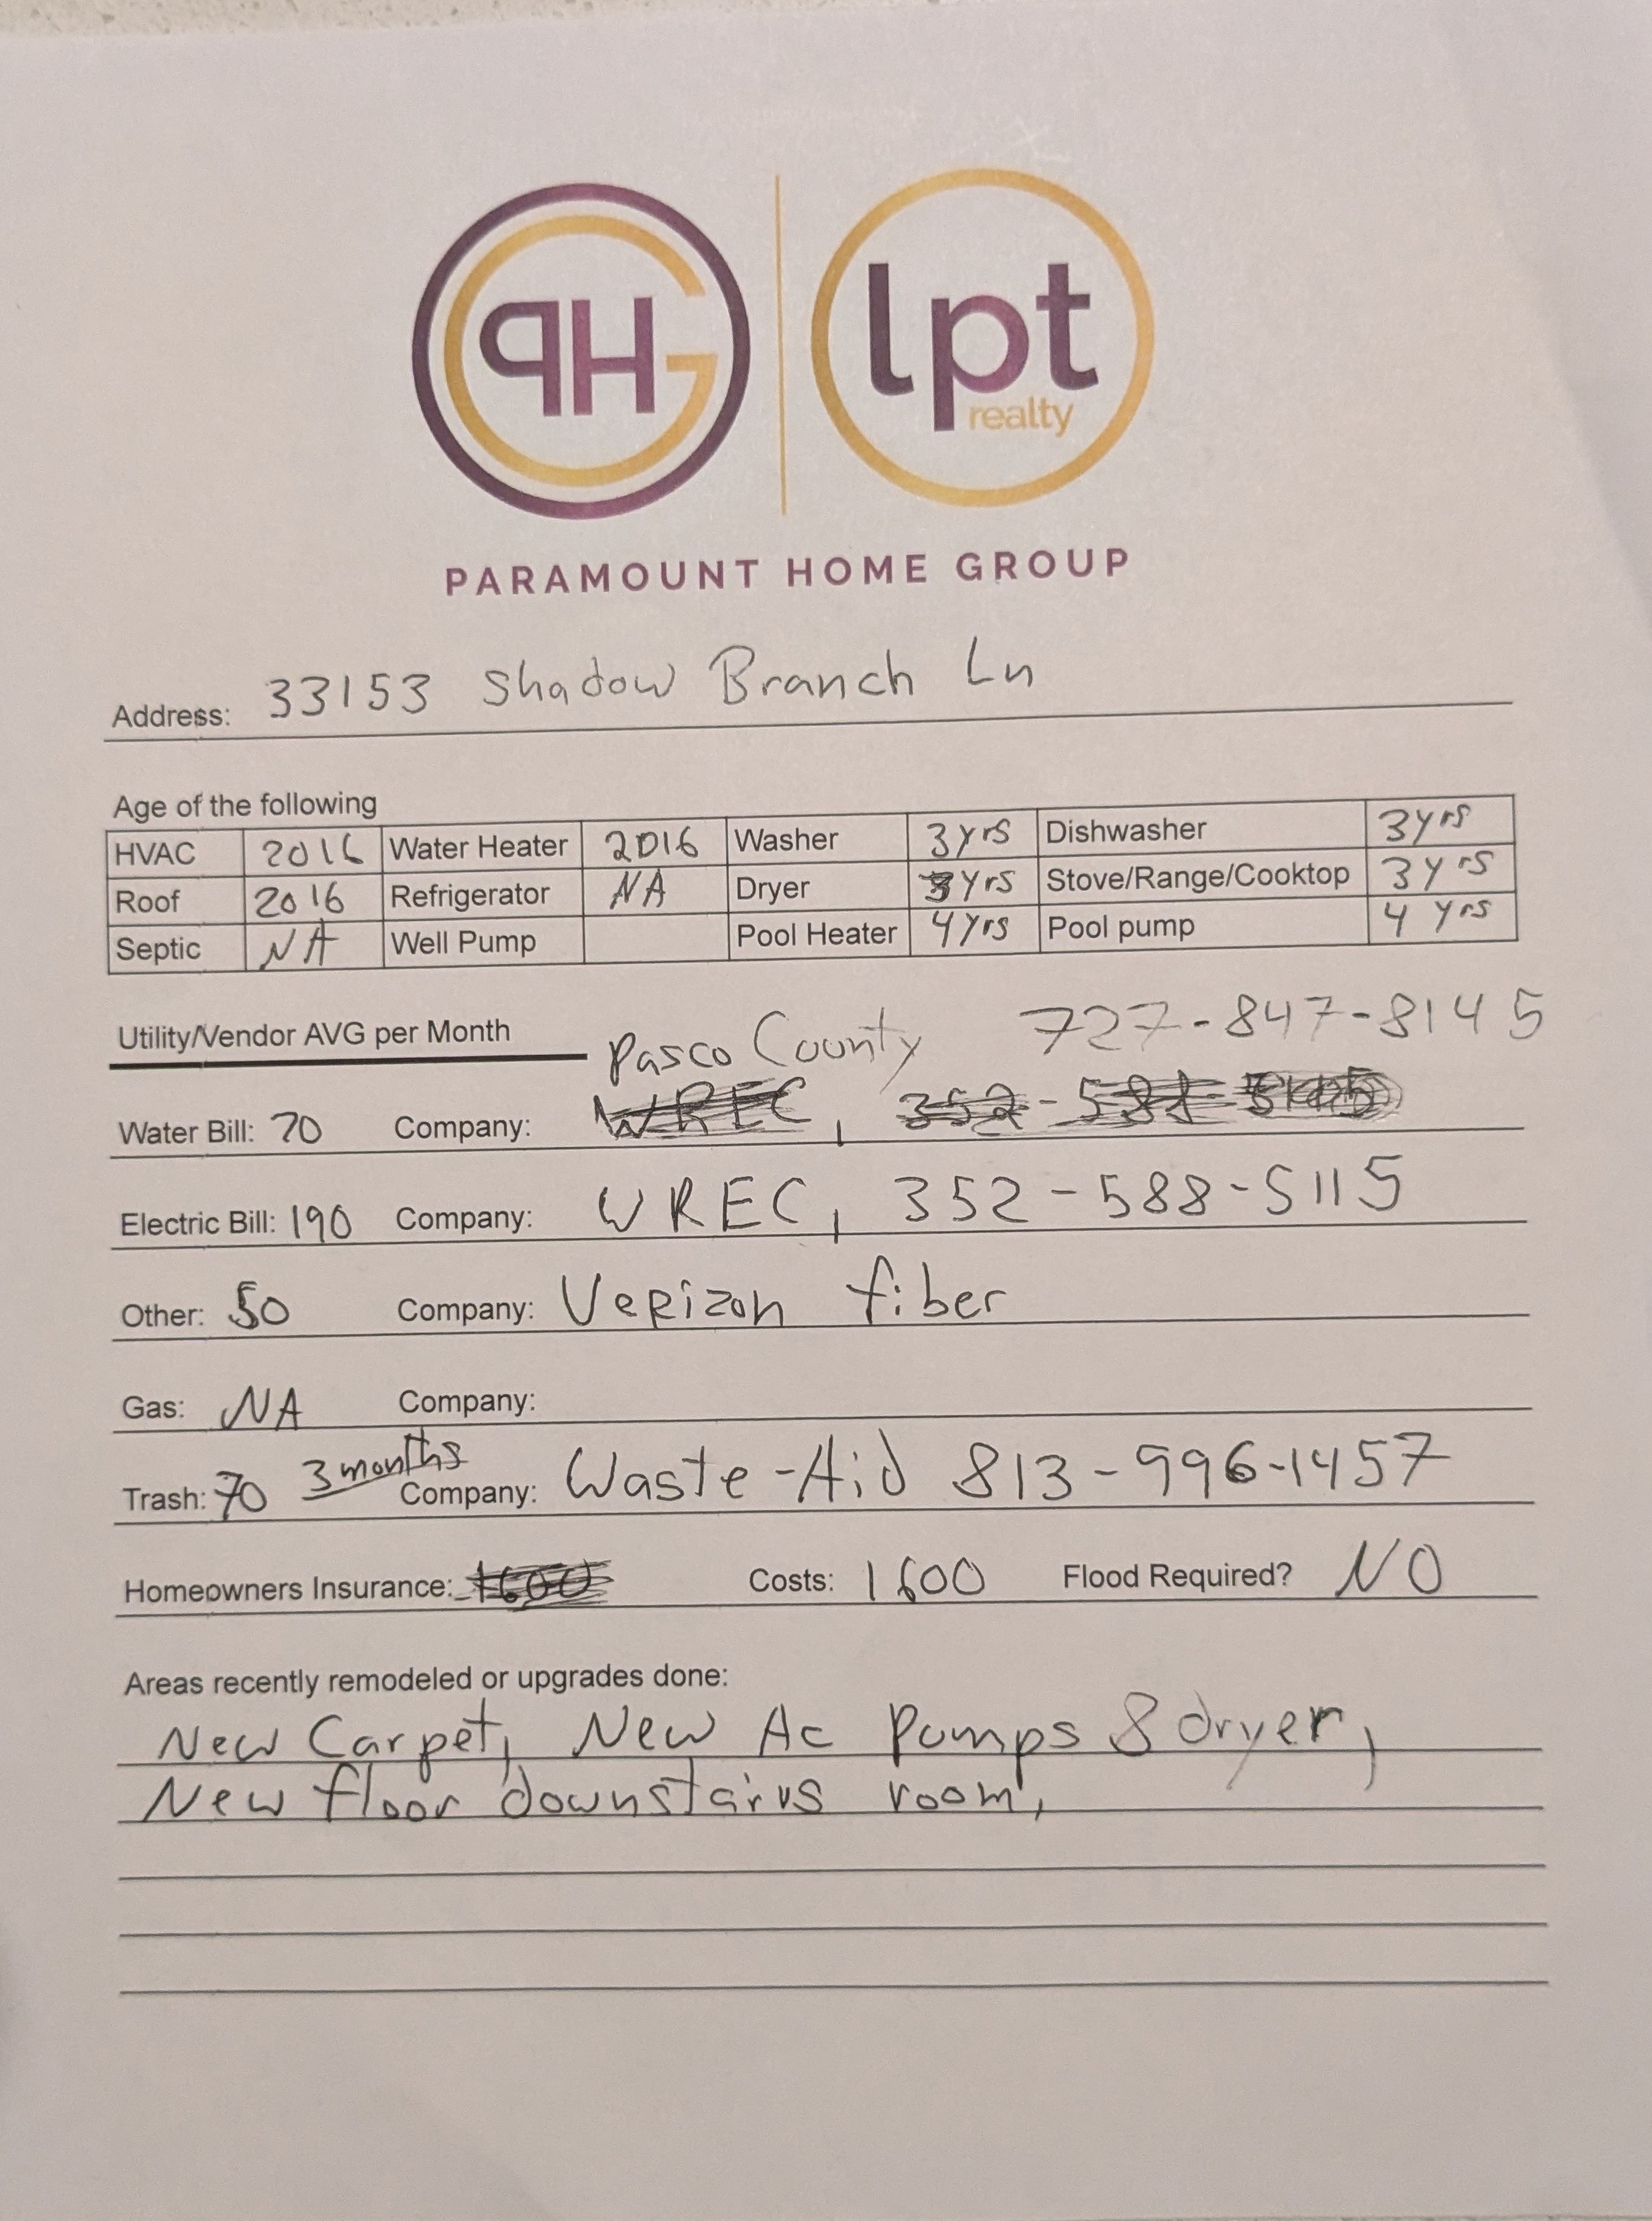 PHG
lpt
realty
PARAMOUNT HOME GROUP
Address: 33153 Shadow Branch Ln
Age of the following
HVAC 2016 Water Heater 2016 Washer 3yrs Dishwasher 3yrs
Roof 2016 Refrigerator NA Dryer 3yrs Stove/Range/Cooktop 3yrs
Septic NA Well Pump Pool Heater 4yrs Pool pump 4 yrs
Utility/Vendor AVG per Month
Pasco County 727-847-8145
Water Bill: 70 Company: WREC,
Electric Bill: 190 Company: WREC, 352-588-5115
Other: 50 Company: Verizon fiber
Gas: NA Company:
Trash: 70 3 months Company: Waste-Aid 813-996-1457
Homeowners Insurance: 1600 Costs: 1600 Flood Required? NO
Areas recently remodeled or upgrades done:
New Carpet, New Ac Pumps & dryer,
New floor downstairs room,